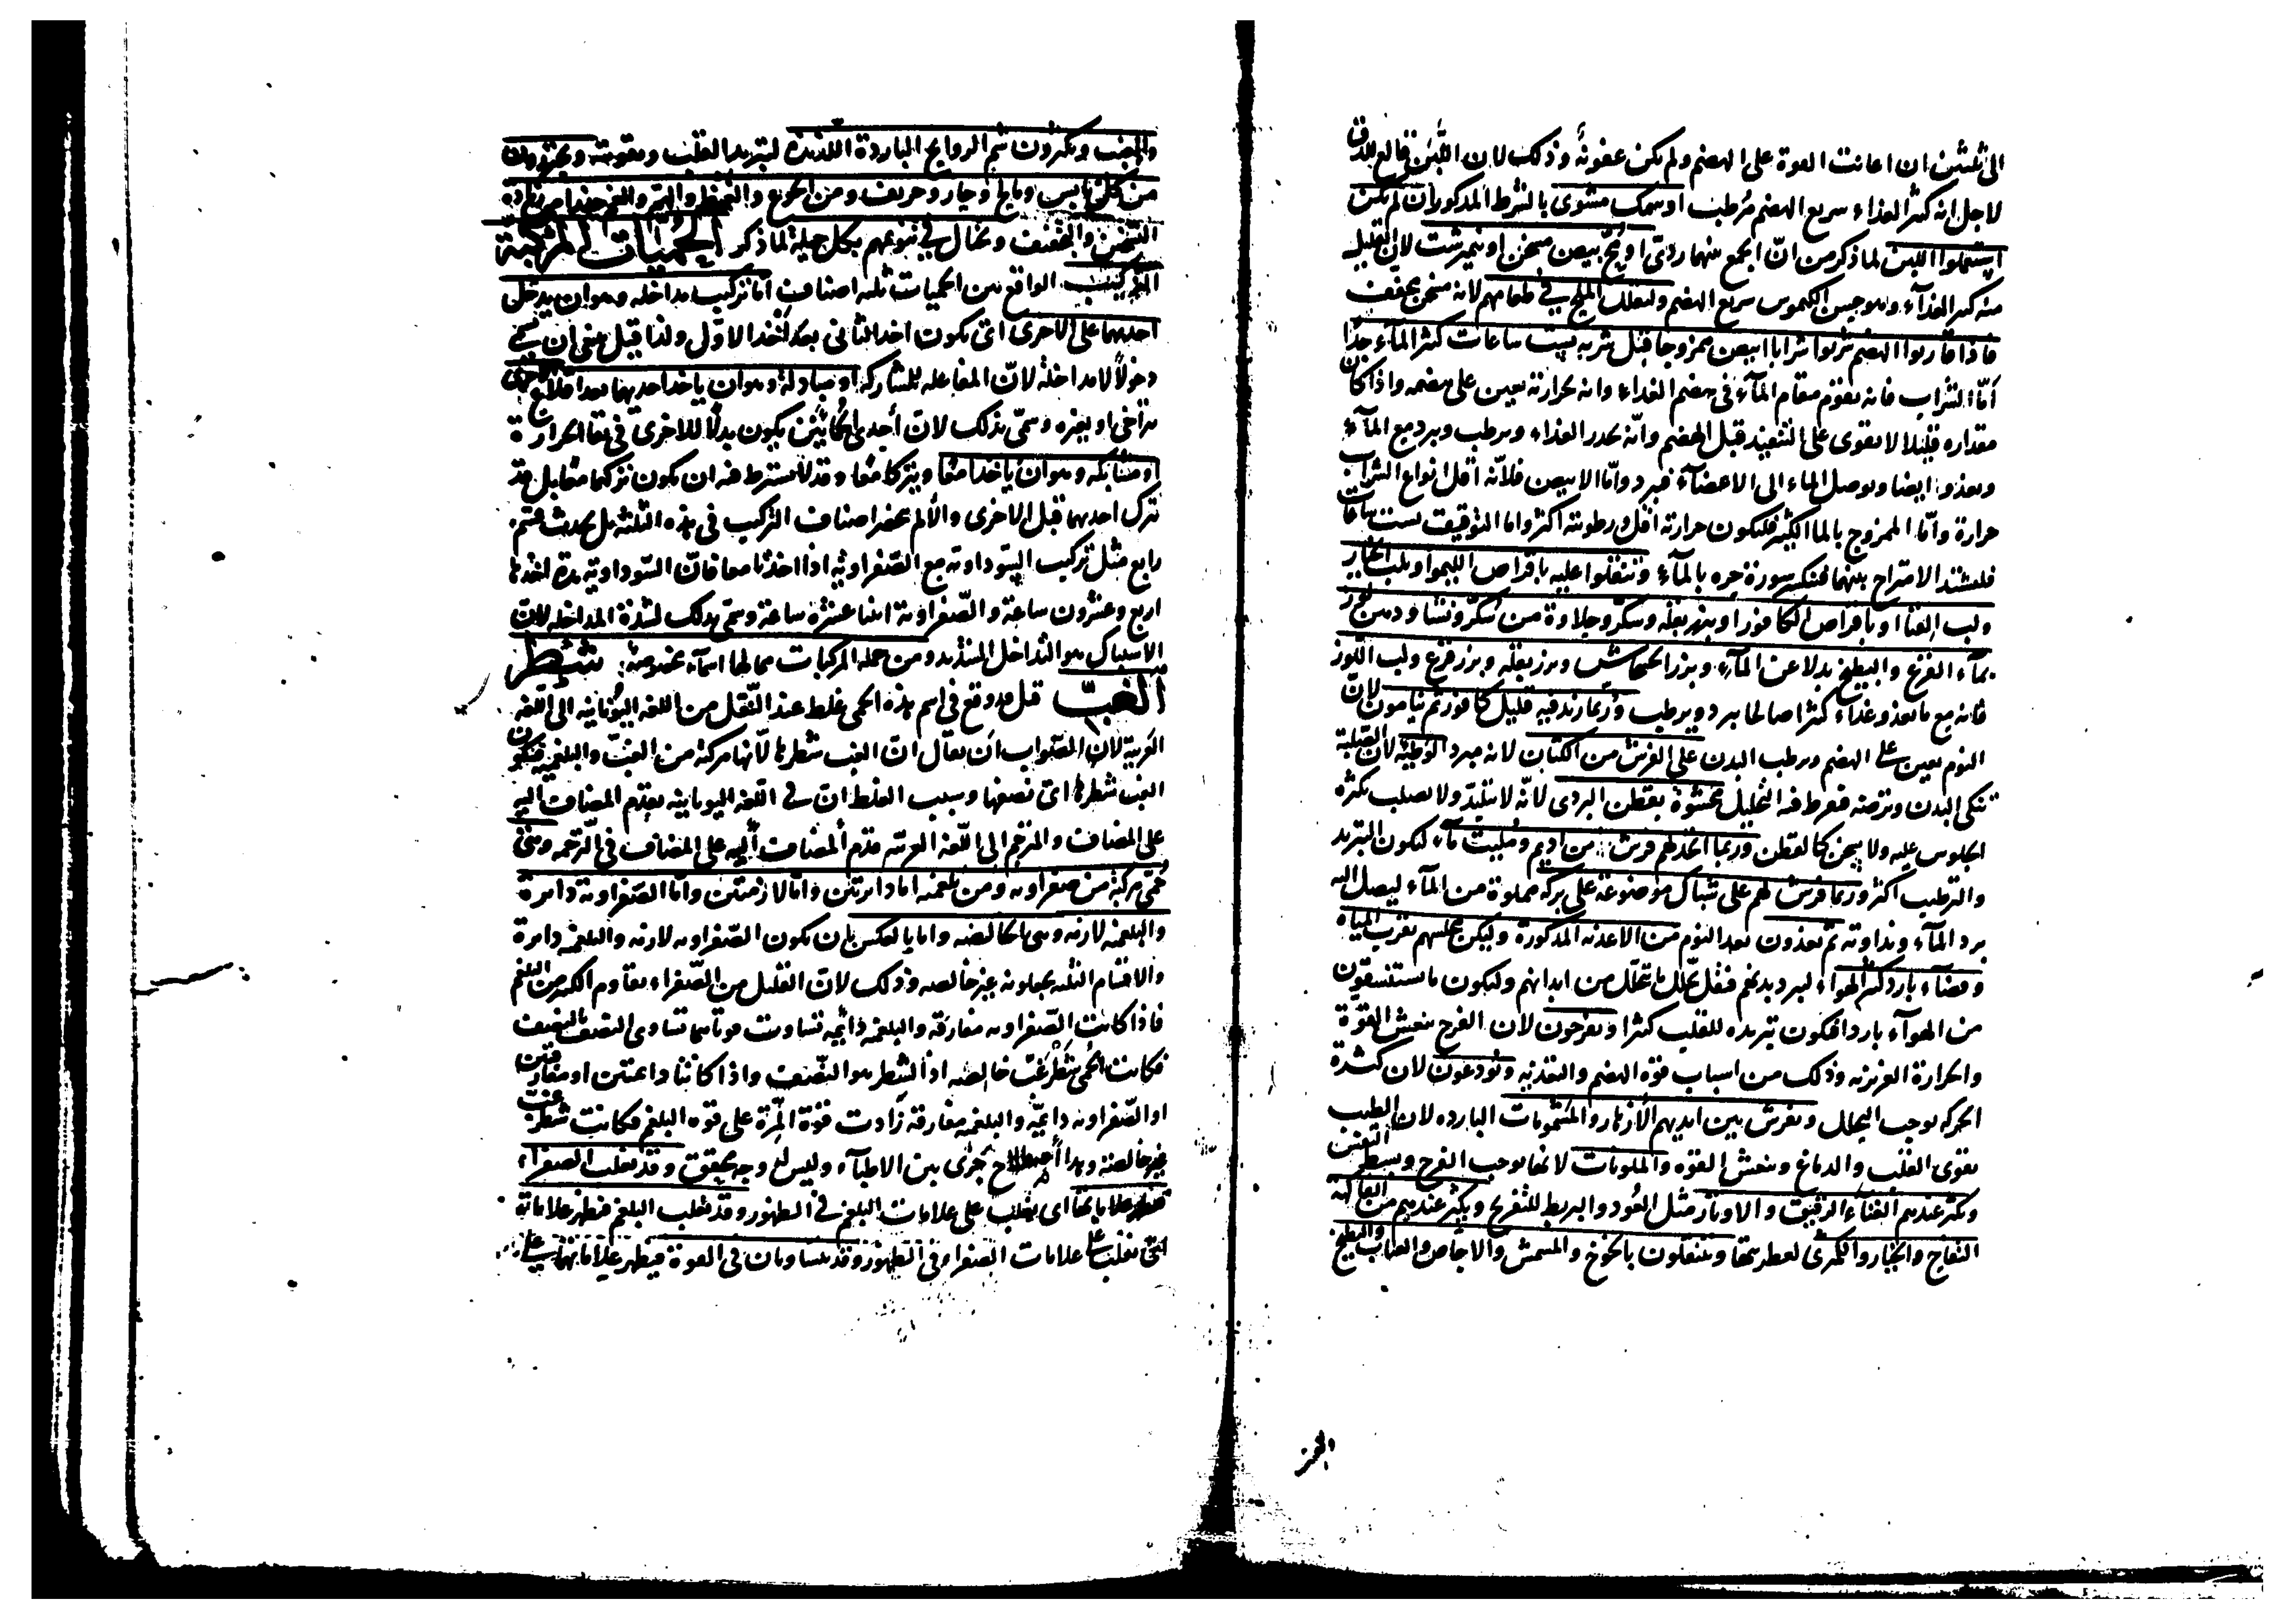 الى ثلثين ان اعانت القوة على الهضم ولم يكن عفونة وذلك لان اللبن قالع للدق
لاجل انه كثير الغذاء سريع الهضم مرطب او سمك مشوى بالشرط المذكور ان لم يكن
استعملوا اللبن لما ذكر من ان الجمع بينهما ردى او مح بيض مسخن او نيمرشت لان القليل
منه كثير الغذآء وهو جيد الكيموس سريع الهضم ولتقلل الملح في طعامهم لانه مسخن مجفف
فاذا قاربوا الهضم شربوا شرابا ابيض ممزوجا قبل شربه بست ساعات كثير المآء جدا
أمّا الشراب فانه يقوم مقام المآء في هضم الغذاء وانه بحرارته يعين على هضمه واذا كان
مقداره قليلا لا يقوى على التنفيذ قبل الهضم وانّه يحدر الغذاء ويرطب ويبرد مع المآء
ويغذو ايضا ويوصل الماء الى الاعضآء فيبرد وامّا الابيض فلانّه اقل انواع الشراب
حرارة وامّا الممزوج بالما الكثير فليكون حرارته اقل ورطوبته اكثر واما التوقيت بست ساعات
فليشتد الامتزاج بينهما فينكسر سورة حره بالمآء وتنقلوا عليه باقراص الليمو او بلب الخيار
ولب القثا او باقراص الكافور او ببزر بقله وسكر وحلاوة من سكر ونشا ودهن لوز
بمآء القرع والبطيخ بدلا عن المآء وبزر الخشخاش وبزر بقله وبزر قرع ولب اللوز
فانه مع ما يغذو غذاء كثيرا صالحا يبرد ويرطب وربما زيد فيه قليل كافور ثم ينامون لانّ
النوم يعين على الهضم ويرطب البدن على الفرش من الكتان لانه مبرد الوطيّه لان الصلبة
تنكى البدن وترضه فيفرط فيه التحليل محشوة بقطن البردى لانّه لا يتلبد ولا يصلب بكثرة
الجلوس عليه ولا يسخن كالقطن وربما اتخذ لهم فرش من اديم ومليت مآء ليكون التبريد
والترطيب اكثر وربما فرش لهم على شباك موضوعة على بركه مملوة من المآء ليصل اليه
برد المآء ونداوته ثم يغذون بعد النوم من الاغذيه المذكورة وليكن مجلسهم بقرب المياه
وفضآء بارد كثير الهوآء ليبرد بدنهم فيقل تحلل ما يتحلل من ابدانهم وليكون ما يستنشقون
من الهوآء باردا فيكون تبريده للقلب كثيرا ويفرحون لان الفرح ينعش القوة
والحرارة الغريزيه وذلك من اسباب قوه الهضم والتغذيه ويودعون لان كثرة
الحركه يوجب التحلل ويفرش بين ايديهم الازهار والمشمومات البارده لان الطيب
يقوى القلب والدماغ وينعش القوه والملونات لانها يوجب الفرح وبسط النفس
ويكثر عندهم الغناء الرقيق والاوتار مثل العود والبربط للتفريح ويكثر عندهم من الفاكهة
التفاح والخيار والكمثرى لعطريتها ويتنقلون بالخوخ والمشمش والاجاص والعناب والبطيخ
والعنب ويكثرون شم الروايح الباردة اللذيذة لتبريد القلب وتقويته ويحترزون
من كل يابس ومالح وحار وحريف ومن الجوع والغيظ والهم والغم حذرا من زيادة
التسخين والتجفيف ويحتال في تنويمهم بكل حيلة لما ذكر الحميات المركبة
التركيب الواقع بين الحميات ثلثه اصناف اما تركيب مداخله وهو ان يدخل
احديهما على الاخرى اى يكون اخذ الثانى بعد اخذ الاوّل ولذا قيل ينبغى ان يسمى
دخولا لا مداخلة لانّ المفاعله للمشاركه او مبادلة وهو ان ياخذ احديهما بعد اقلاع الاخرى
بتراخى او بغيره وسمّى بذلك لان أحدى الحمائين يكون بدلا للاخرى في بقا الحرارة
او مشابكه وهو ان ياخذا معا ويتركا معا وقد لا يشترط فيه ان يكون تركهما معا بل قد
تترك احديهما قبل الاخرى والّا لم ينحصر اصناف التركيب فى هذه الثلثة بل يحدث قسم
رابع مثل تركيب السّوداويه مع الصّفراويه اذا اخذتا معا فانّ السّوداويّة مدة اخذها
اربع وعشرون ساعة والصّفراوية اثنا عشرة ساعة وسمّى بذلك لشدّة المداخله لان
الاشتباك هو التداخل الشديد ومن جمله المركبات مما لها اسمآء مخصوصة شطر
الغبّ قيل قد وقع فى اسم هذه الحمى غلط عند النّقل من اللغه اليونانيه الى اللّغه
العربية لان الصّواب ان يقال انّ الغب شطرها لانّها مركبه من الغبّ والبلغميه فيكون
الغب شطرها اى نصفها وسبب الغلط انّ في اللّغه اليونانيه يقدّم المضاف اليه
على المضاف والمترجم الى اللّغه العربيه قدم المضاف إليه على المضاف فى الترجمه وهى
حمّى مركبه من صفراويه ومن بلغميه اما دايرتين وامّا لازمتين وامّا الصّفراويه دايرة
والبلغميه لازمه وهى الخالصه واما بالعكس بان يكون الصّفراويه لازمه والبلغميه دايرة
والاقسام الثلثه يجعلونه غير خالصه وذلك لانّ القليل من الصّفراء يقاوم الكثير من البلغم
فاذا كانت الصّفراويه مفارقة والبلغميه دائيمه تساوت قوتاهما تساوى النصف للنصف
فكانت الحمّى شطر غبّ خالصه اذ الشطر هو النّصف واذا كانتا دايمتين او مفارقتين
او الصّفراويه دايميّه والبلغميه مفارقه زادت قوّة المرّة على قوه البلغم فكانت شطر غبّ
غير خالصة وهذا اصطلاح جرى بين الاطبآء وليس له وجه محقق وقد يغلب الصفراء
فيظهر علاماتها اى يغلب على علامات البلغم فى الظهور وقد يغلب البلغم فيظهر علاماته
اى يغلب على علامات الصفراء فى الظهور وقد يتساويان فى القوة فيظهر علاماتهما على